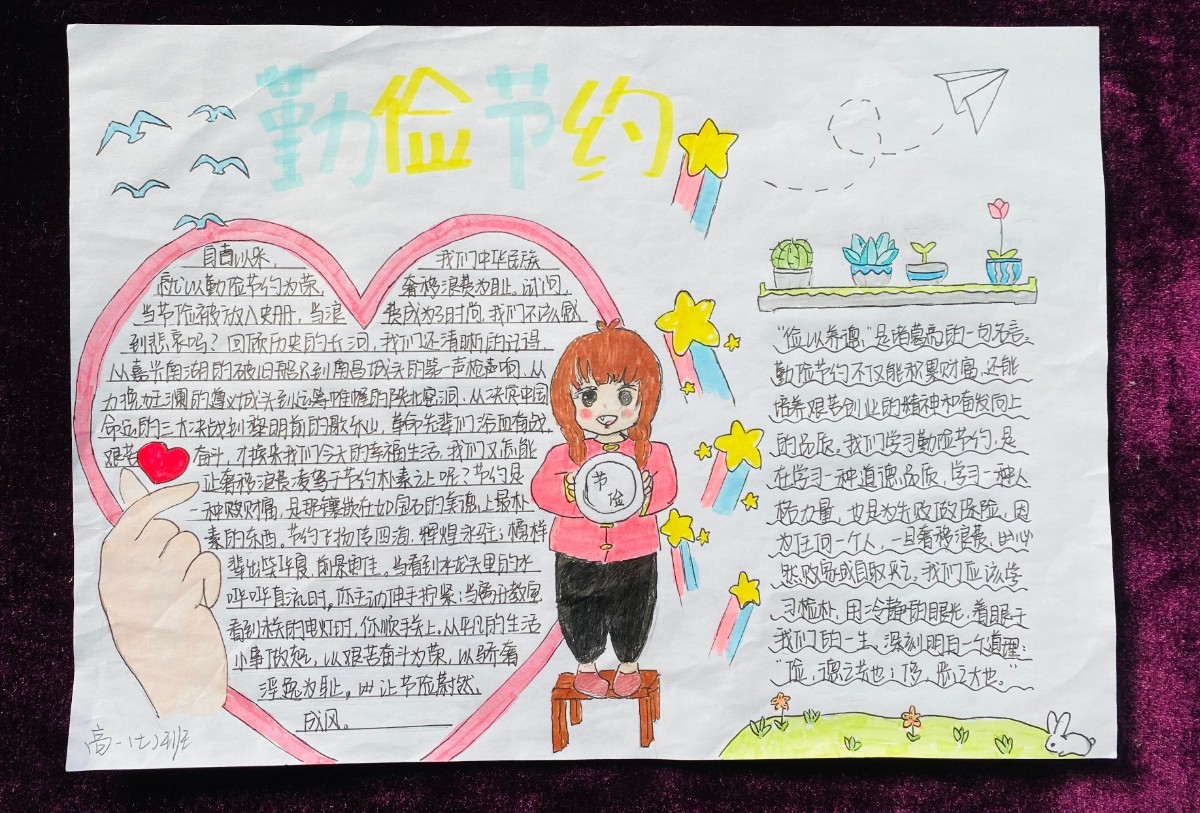 勤俭节约
自古以来, 我们中华民族
就以勤俭节约为荣, 奢侈浪费为耻。试问,
当节俭被放入史册, 当浪 费成为了时尚, 我们不该感
到悲哀吗? 回顾历史的长河, 我们还清晰的记得
从嘉兴南湖的破旧船只到南昌城头的第一声枪声响, 从
力挽狂澜的遵义城头到远离喧嚣的陕北窑洞, 从决定中国
命运的三大决战到黎明前的歌乐山, 革命先辈们浴血奋战,
艰苦 奋斗, 才换来我们今天的幸福生活, 我们又怎能
让奢侈浪费凌驾于节约朴素之上呢? 节约是
一种财富, 是那镶嵌在如宝石的美德上最朴
素的东西。节约飞扬传四海, 辉煌永驻; 榜样
辈出笑华夏, 前景更佳。当看到水龙头里的水
哗哗直流时, 你主动伸手拧紧; 当离开教室
看到未关的电灯时, 你顺手关上, 从平凡的生活
小事做起, 以艰苦奋斗为荣, 以骄奢
淫逸为耻。让节俭蔚然
成风。
高一(七)班
节
俭
“俭以养德”是诸葛亮的一句名言。
勤俭节约不仅能积累财富, 还能
培养艰苦创业的精神和奋发向上
的品质。我们学习勤俭节约, 是
在学习一种道德品质, 学习一种人
格力量, 也是为失败做保险, 因
为任何一个人, 一旦奢侈浪费, 必
然败家或自取灭亡, 我们应该学
习检朴, 用冷静的眼光, 着眼于
我们的一生, 深刻明白一个道理:
“俭, 德之共也; 侈, 恶之大也。”